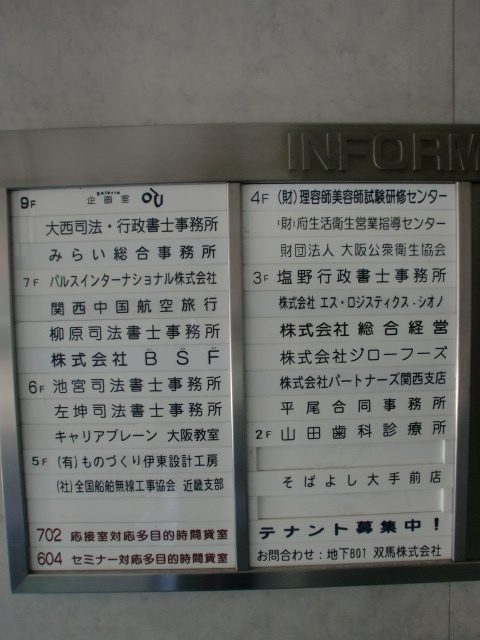 INFORM
9F galerie 企画室
大西司法・行政書士事務所
みらい総合事務所
7F パルスインターナショナル株式会社
関西中国航空旅行
柳原司法書士事務所
株式会社 BSF
6F 池宮司法書士事務所
左坤司法書士事務所
キャリアブレーン 大阪教室
5F (有)ものづくり伊東設計工房
(社)全国船舶無線工事協会 近畿支部
702 応接室対応多目的時間貸室
604 セミナー対応多目的時間貸室
4F (財)理容師美容師試験研修センター
(財)府生活衛生営業指導センター
財団法人 大阪公衆衛生協会
3F 塩野行政書士事務所
株式会社 エス・ロジスティクス・シオノ
株式会社 総合経営
株式会社ジローフーズ
株式会社パートナーズ関西支店
平尾合同事務所
2F 山田歯科診療所
そばよし大手前店
テナント募集中!
お問合わせ:地下B01 双馬株式会社